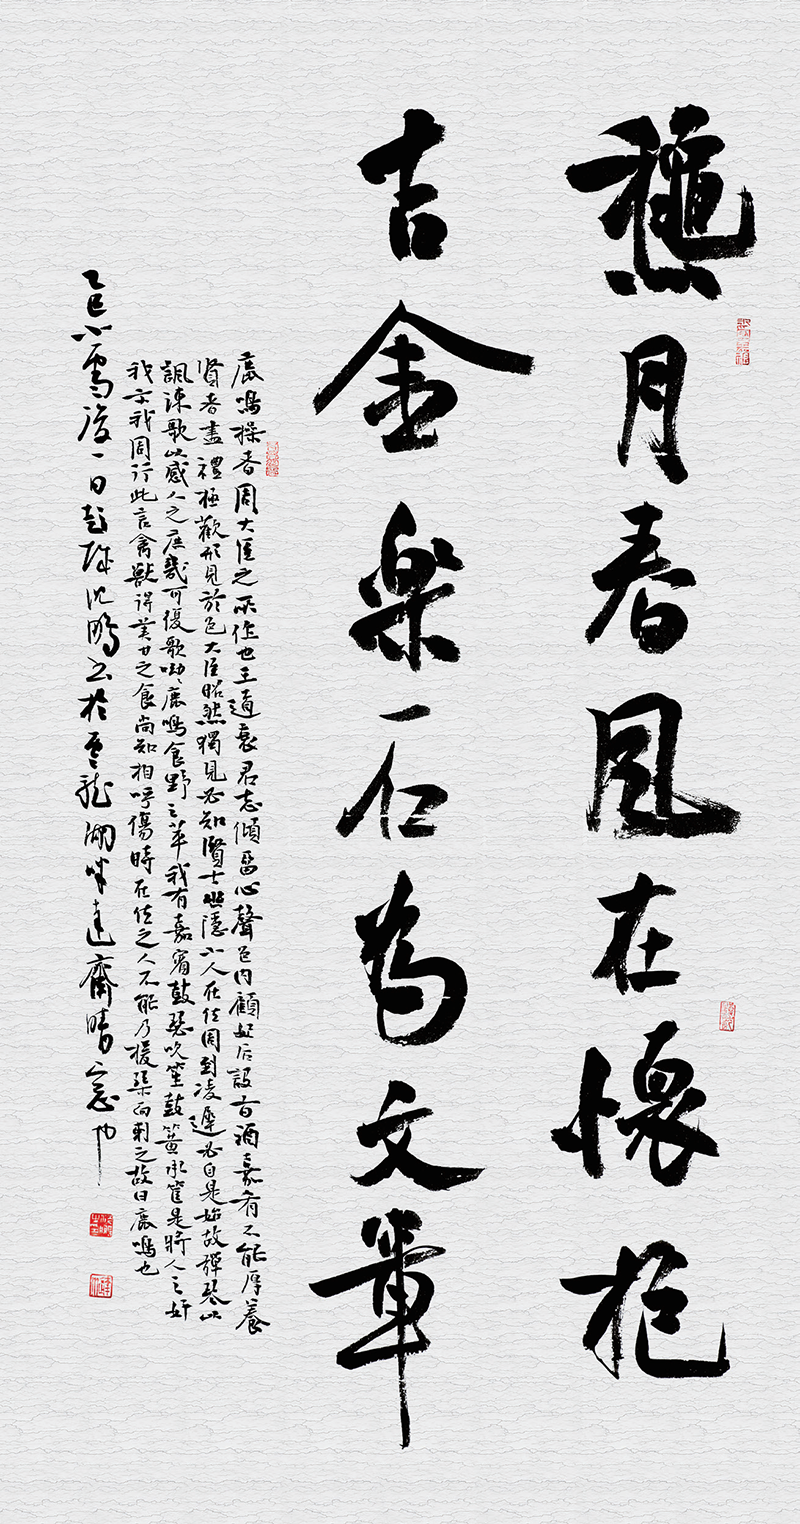 龝月春風在懷抱
吉金樂石為文章
鹿鳴操者周大臣之所作也王道衰君志傾留心聲色內顧妃后設旨酒嘉肴不能厚養
賢者盡禮極歡形見於色大臣昭然獨見必知賢士幽隱小人在位周到凌遲必自是始故彈琴以
諷諫歌以感人之庶幾可復歌呦呦鹿鳴食野之苹我有嘉賓鼓瑟吹笙鼓簧承筐是將人之好
我示我周行此言禽獸得美甘之食尚知相呼傷時在位之人不能乃援琴而刺之故曰鹿鳴也
乙巳小雪後一日彭城沈鵬書於雲龍湖畔達齋晴窗